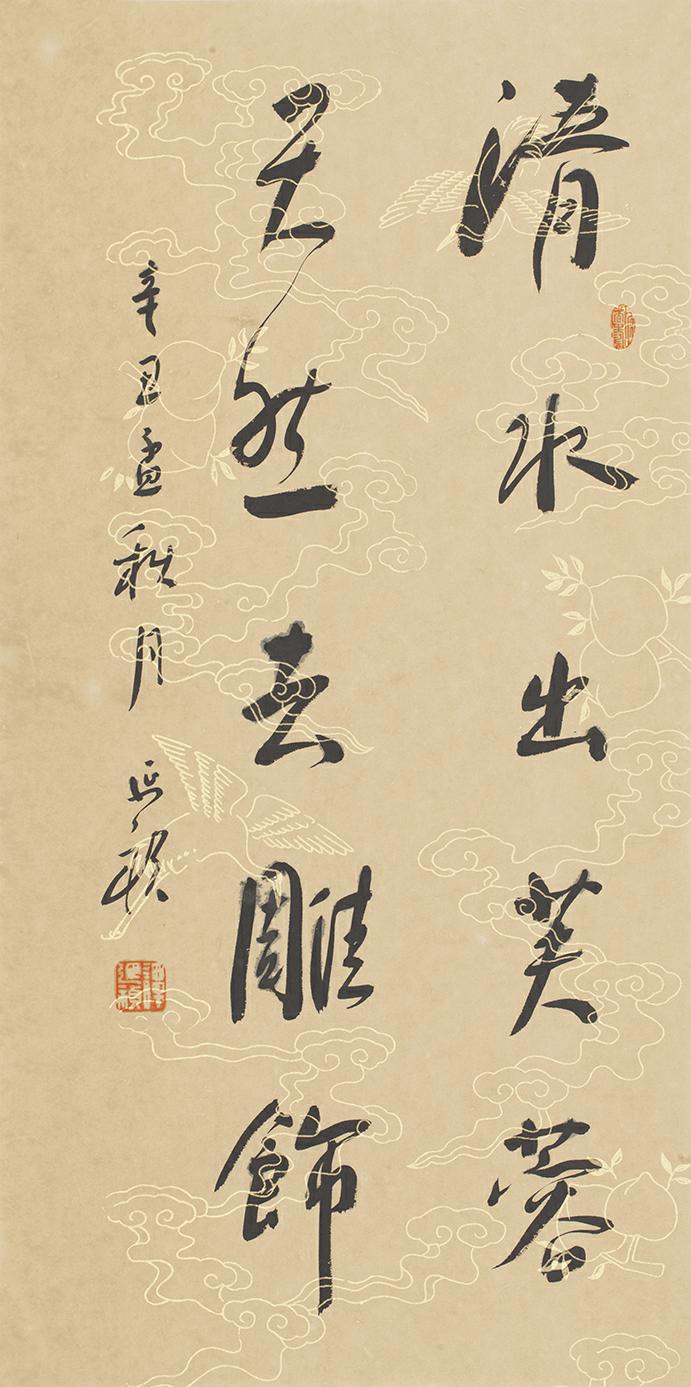 清水出芙蓉
天然去雕飾
辛丑孟秋月 延